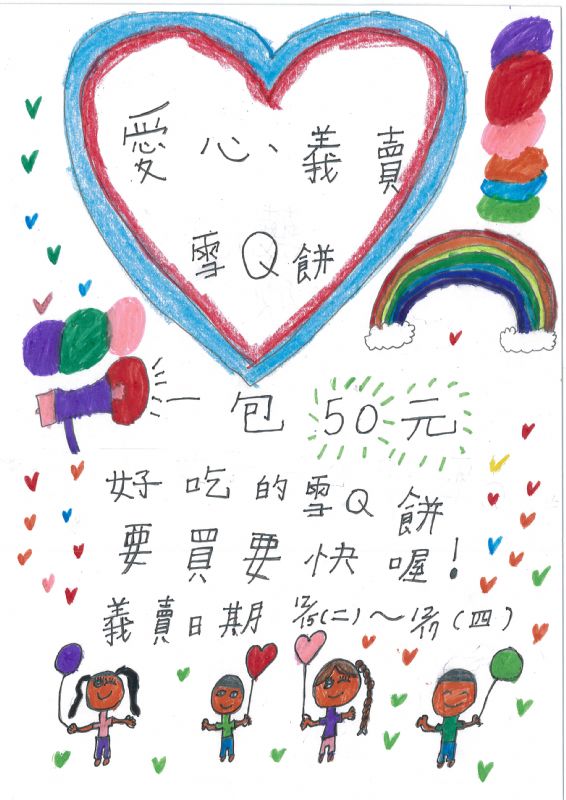 愛心、義賣
雪Q餅
一包50元
好吃的雪Q餅
要買要快喔!
義賣日期 12/15(二)~12/17(四)